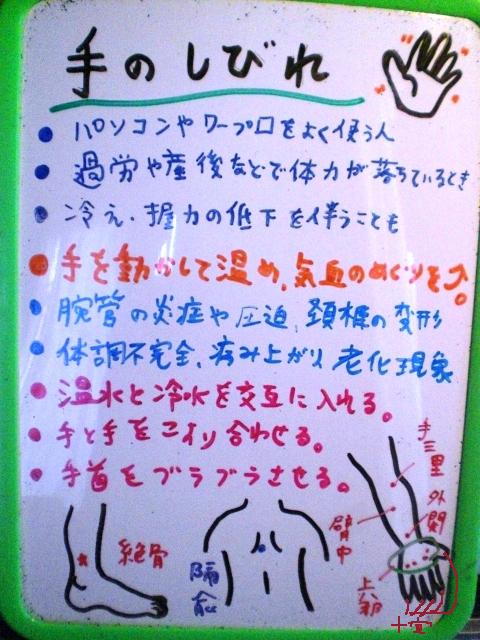 手のしびれ
パソコンやワープロをよく使う人
過労や産後などで体力が落ちているとき
冷え・握力の低下を伴うことも
手を動かして温め、気血のめぐりを↗。
腕管の炎症や圧迫、頚椎の変形
体調不完全、病み上がり 老化現象
温水と冷水を交互に入れる。
手と手をこすり合わせる。
手首をブラブラさせる。
手三里
外関
臂中
絶骨
膈兪
上八邪
十宣